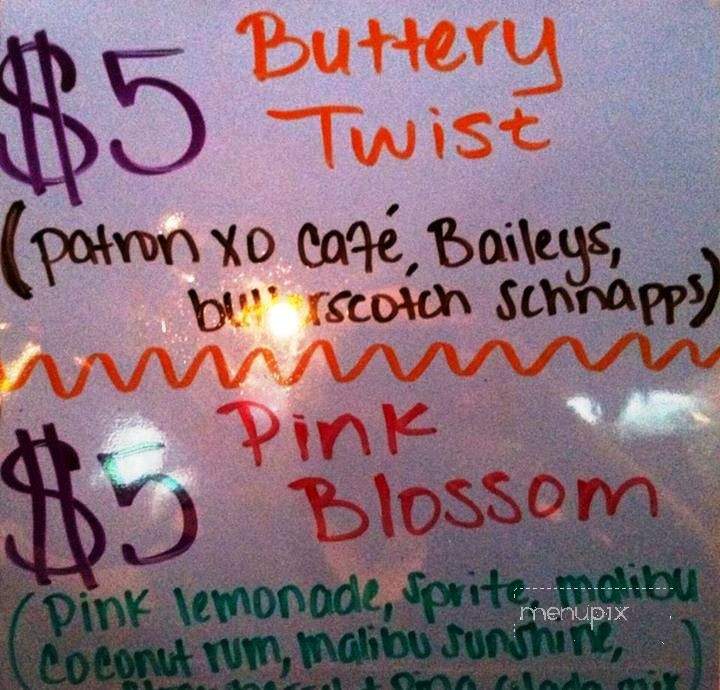 $5 Buttery
Twist
(Patron XO Café, Baileys,
butterscotch schnapps)
$5 Pink
Blossom
(Pink lemonade, Sprite, malibu
menupix
Coconut rum, malibu sunshine,